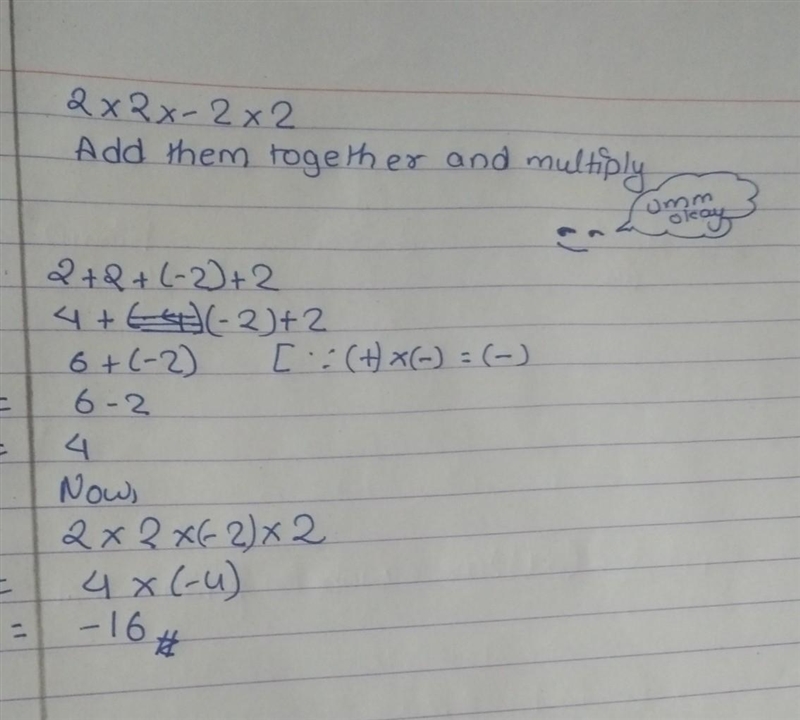 2 x 2 x - 2 x 2
Add them together and multiply
Umm
okay
2 + 2 + (-2) + 2
4 + (-2) + 2
6 + (-2) [ ∵ (+) x (-) = (-)
= 6 - 2
= 4
Now,
2 x 2 x (-2) x 2
= 4 x (-4)
= -16 #